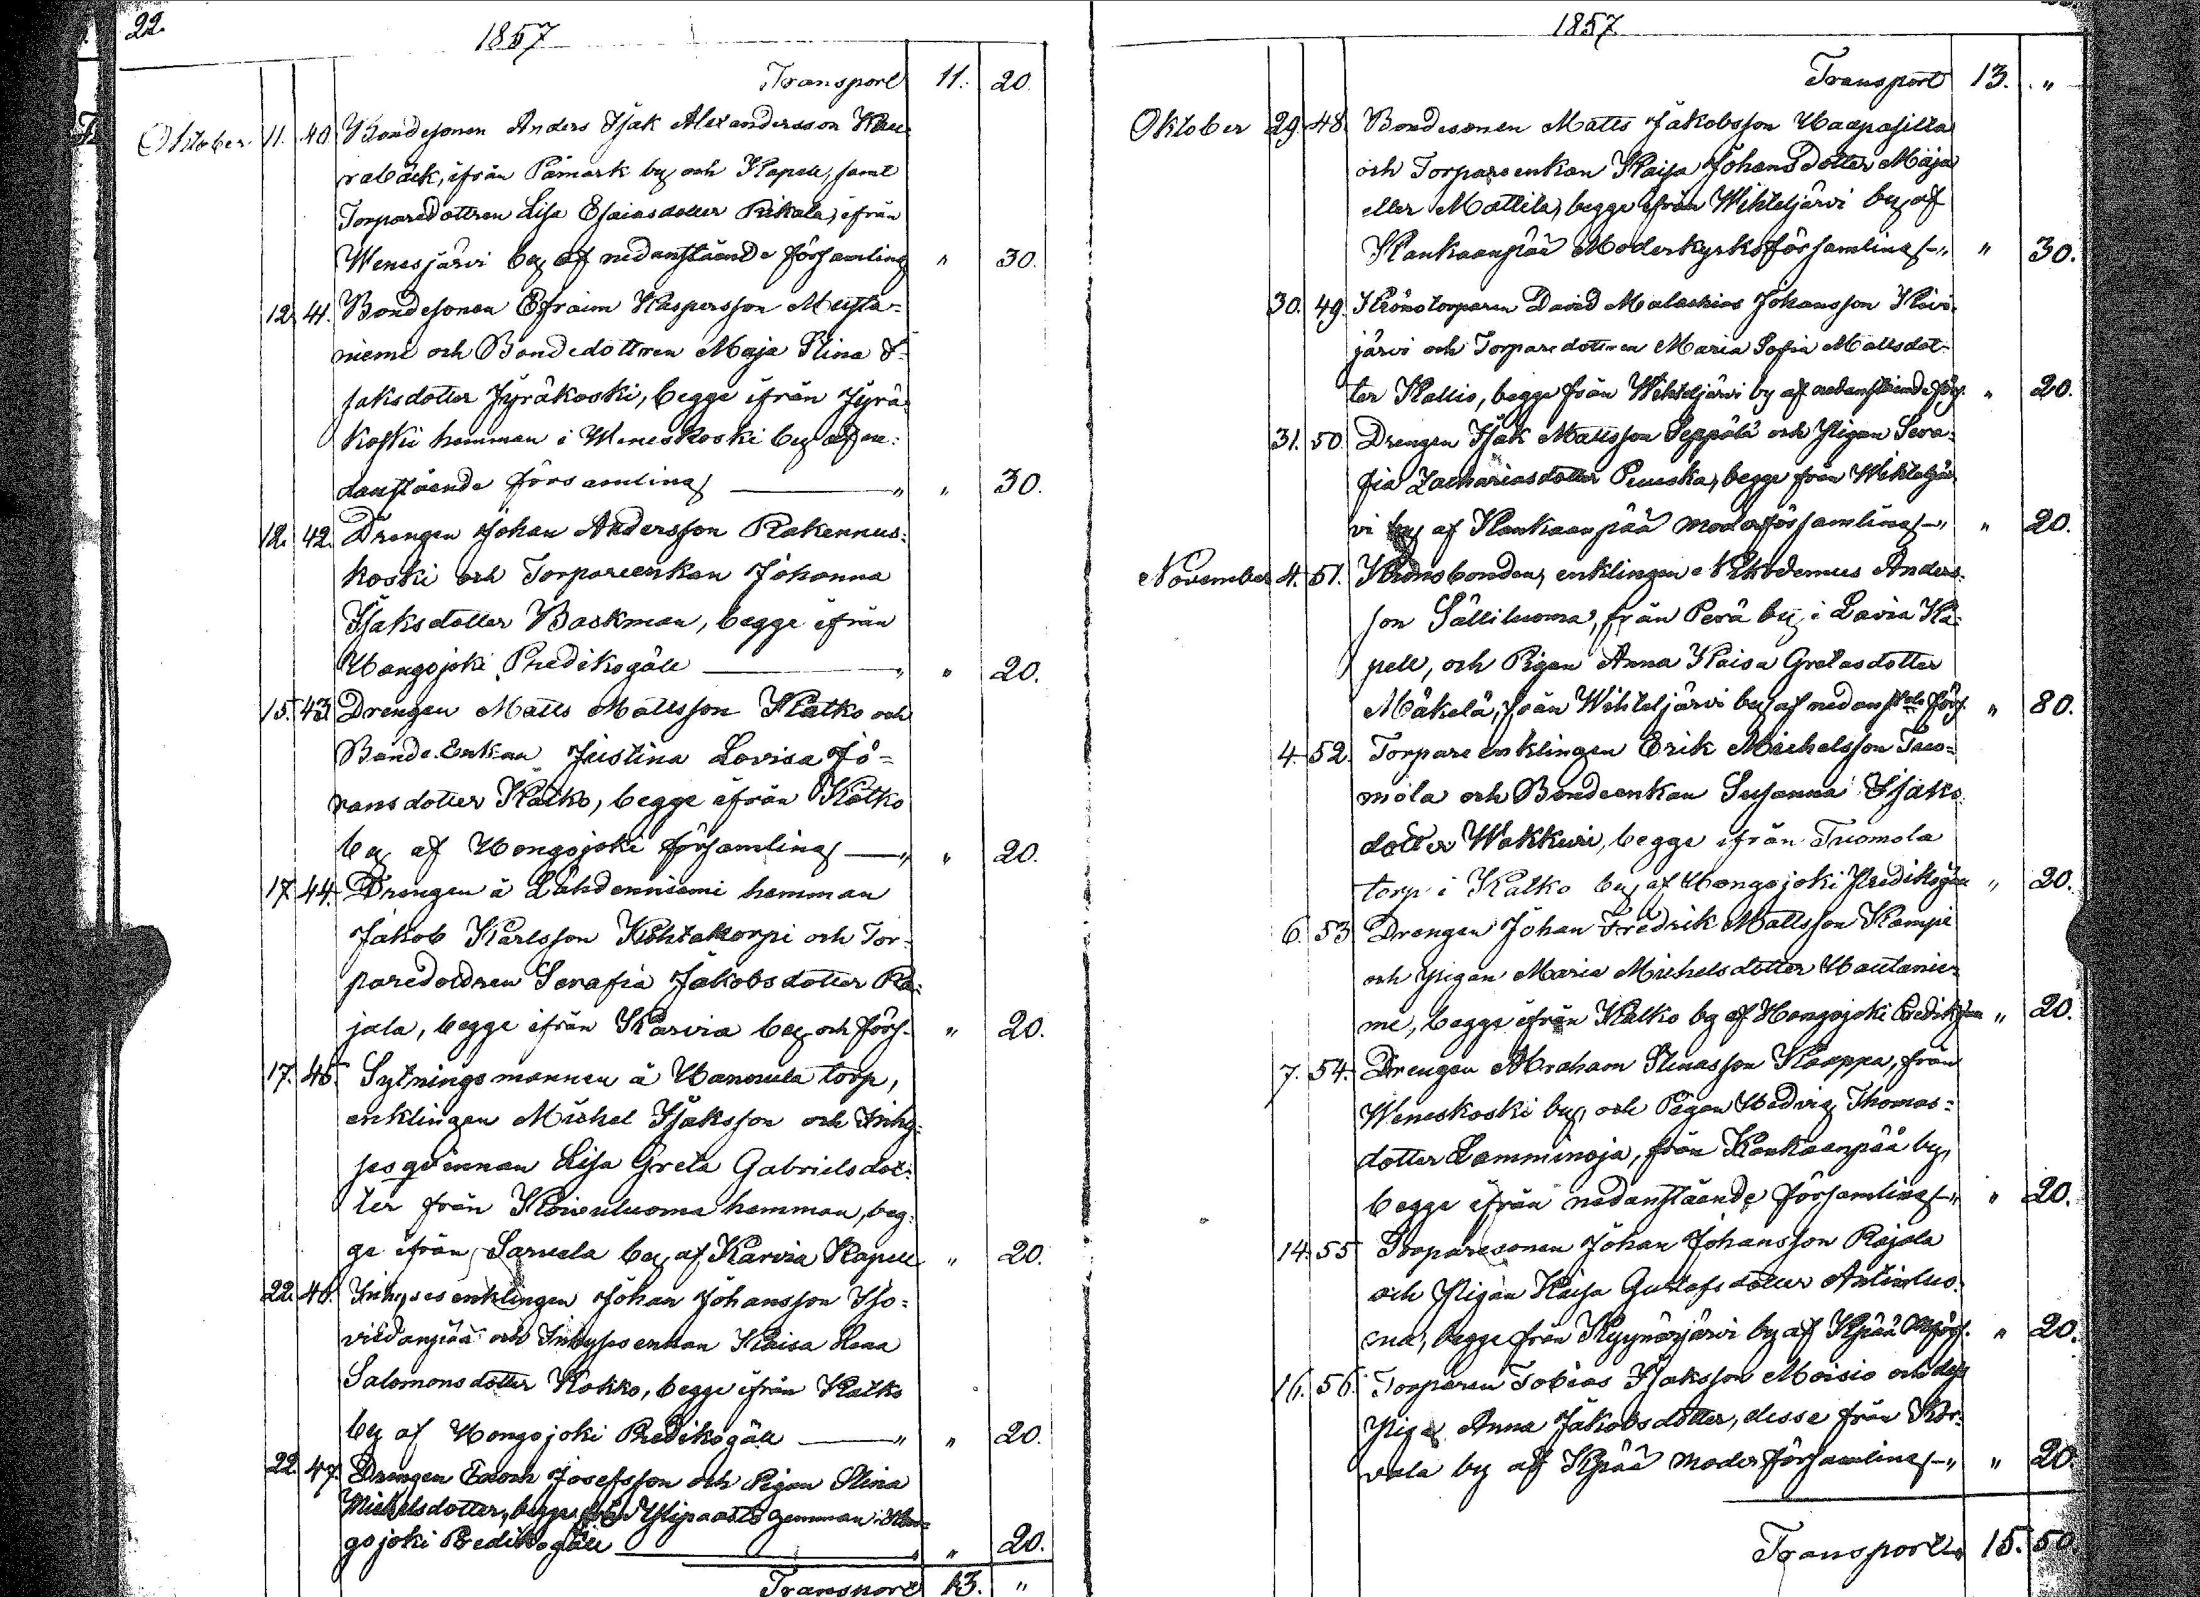 22.
1857
Transport 11. 20.
Oktober 11. 40. Bondesonen Anders Isak Alexandersson Kau-
rabäck, ifrån Påmark by och Kapell, samt
Torparedottren Lisa Esaiasdotter Rikala, ifrån
Wenesjärvi by af nedanstående församling " 30.
12. 41. Bondesonen Efraim Kaspersson Musta-
niemi och Bondedottren Maja Stina I-
saksdotter Jyräkoski, begge ifrån Jyrä-
koski hemman i Weneskoski by af ne-
danstående församling " " 30.
12. 42. Drengen Johan Andersson Rakennus-
koski och Torpareenkan Johanna
Isaksdotter Backman, begge ifrån
Hongojoki Predikogäll " " 20.
15. 43. Drengen Matts Mattsson Katko och
Bonde Enkan Justina Lovisa Jö-
ransdotter Katko, begge ifrån Katko
by af Hongojoki församling " " 20.
17. 44. Drengen å Lähdenniemi hemman
Jakob Karlsson Kohtakorpi och Tor-
paredottren Serafia Jakobsdotter Ra-
jala, begge ifrån Karvia by och förs. " 20.
17. 45. Sytningsmannen å Hannula torp,
enklingen Michel Isaksson och Inhy-
sesqvinnan Lisa Greta Gabrielsdot-
ter från Koivuluoma hemman, beg-
ge ifrån Sarvela by af Karvia Kapell " 20.
22. 46. Inhysesenklingen Johan Johansson Iso-
viidanpää och Inhysesenkan Kaisa Lena
Salomonsdotter Kokko, begge ifrån Katko
by af Hongojoki Predikogäll " " 20.
22. 47. Drengen Enoch Josefsson och Pigan Stina
Michelsdotter, begge från Ylipaasto hemman i Hon-
gojoki Predikogäll " " 20.
Transport 13. "
1857
Transport 13. "
Oktober 29. 48. Bondesonen Matts Jakobsson Haapasilta
och Torpareenkan Kaisa Johansdotter Maja
eller Mattila, begge ifrån Wihteljärvi by af
Kankaanpää Moderkyrkoförsamling " " 30.
30. 49. Kronotorparen David Malachias Johansson Kivi-
järvi och Torparedottren Maria Sofia Mattsdot-
ter Kallio, begge från Wihteljärvi by af nedanstående förs. " 20.
31. 50. Drengen Isak Mattsson Seppälä och Pigan Sera-
fia Zachariasdotter Peuska, begge från Wihteljär-
vi by af Kankaanpää moderförsamling " " 20.
November 4. 51. Kronobonden, enklingen Nikodemus Anders-
son Sälliluoma, från Perä by i Lavia Ka-
pell, och Pigan Anna Kaisa Gretasdotter
Mäkelä, från Wihteljärvi by af nedanst:de förs. " 80.
4. 52. Torpareenklingen Erik Michelsson Tuo-
mola och Bondeenkan Susanna Isaks-
dotter Wakkuri, begge ifrån Tuomola
torp i Katko by af Hongojoki Predikogäll " 20.
6. 53. Drengen Johan Fredrik Mattsson Kampi
och Pigan Maria Michelsdotter Hautanie-
mi, begge ifrån Katko by af Hongojoki Predikogäll " 20.
7. 54. Drengen Abraham Stinasson Kaappa, från
Weneskoski by, och Pigan Hedvig Thomas-
dotter Lamminoja, från Kankaanpää by,
begge ifrån nedanstående församling " " 20.
14. 55. Torparesonen Johan Johansson Rajala
och Pigan Kaisa Gustafsdotter Antinluo-
ma, begge från Kyynärjärvi by af Kpää Mförs. " 20.
16. 56. Torparen Tobias Isaksson Moisio och dess
Piga Anna Jakobsdotter, desse från Kor-
vala by af Kpää moderförsamling " " 20.
Transport 15. 50.